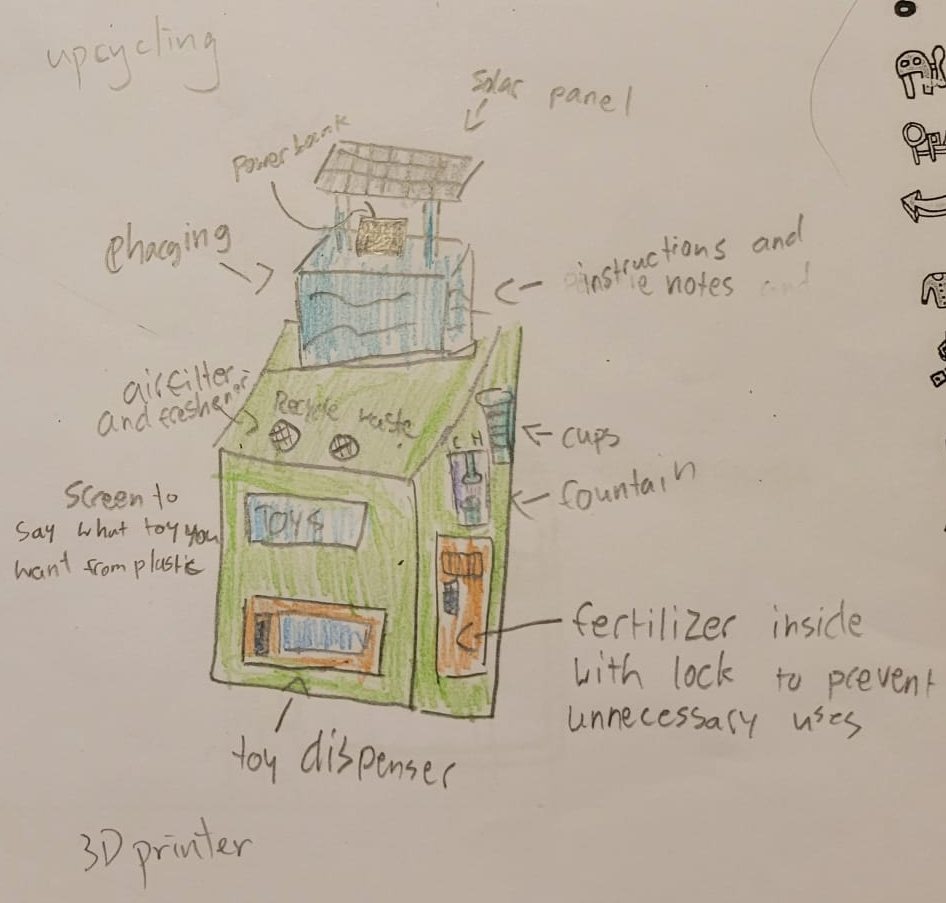 upcycling
Solar panel
Power bank
Charging
instructions and
notes
air filter
and freshener
Recycle waste
C H
cups
fountain
Screen to
say what toy you
want from plastic
TOYS
fertilizer inside
with lock to prevent
unnecessary uses
toy dispenser
3D printer